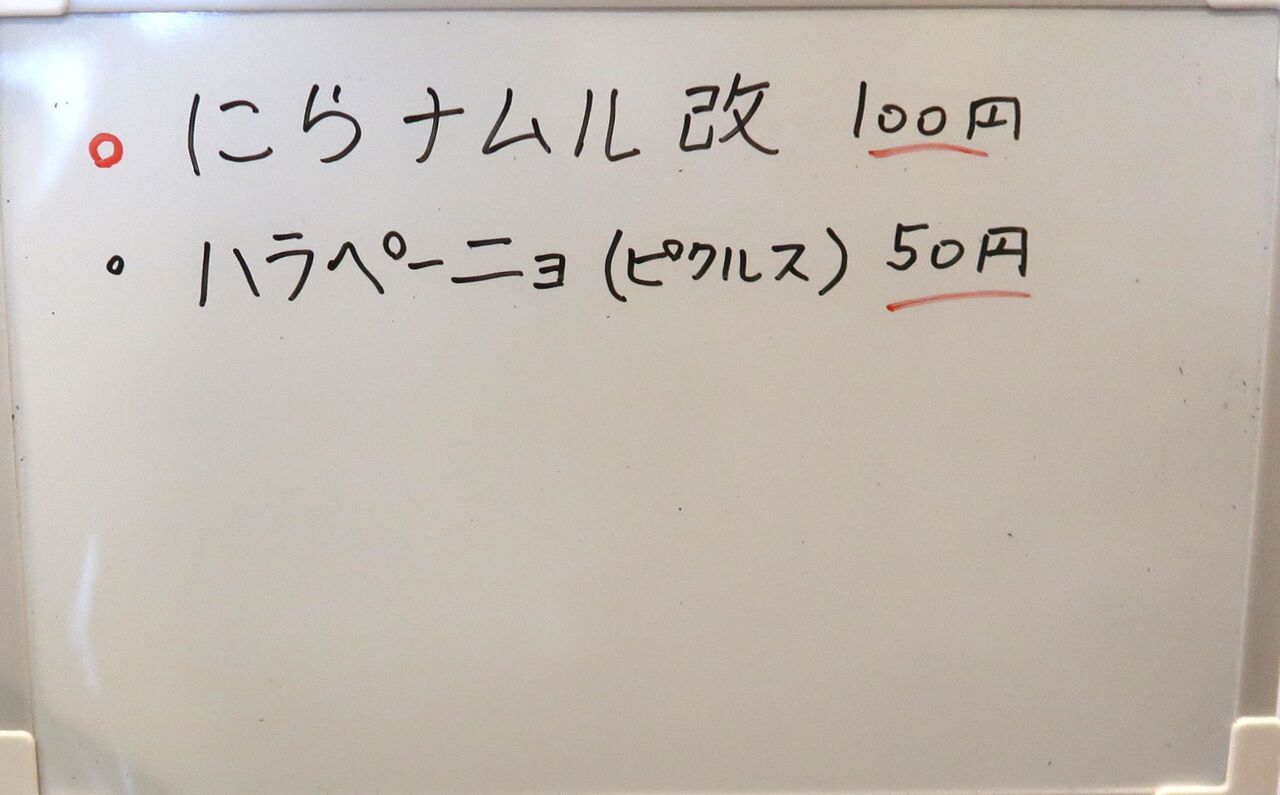 ○ にらナムル改 100円
○ ハラペーニョ(ピクルス) 50円